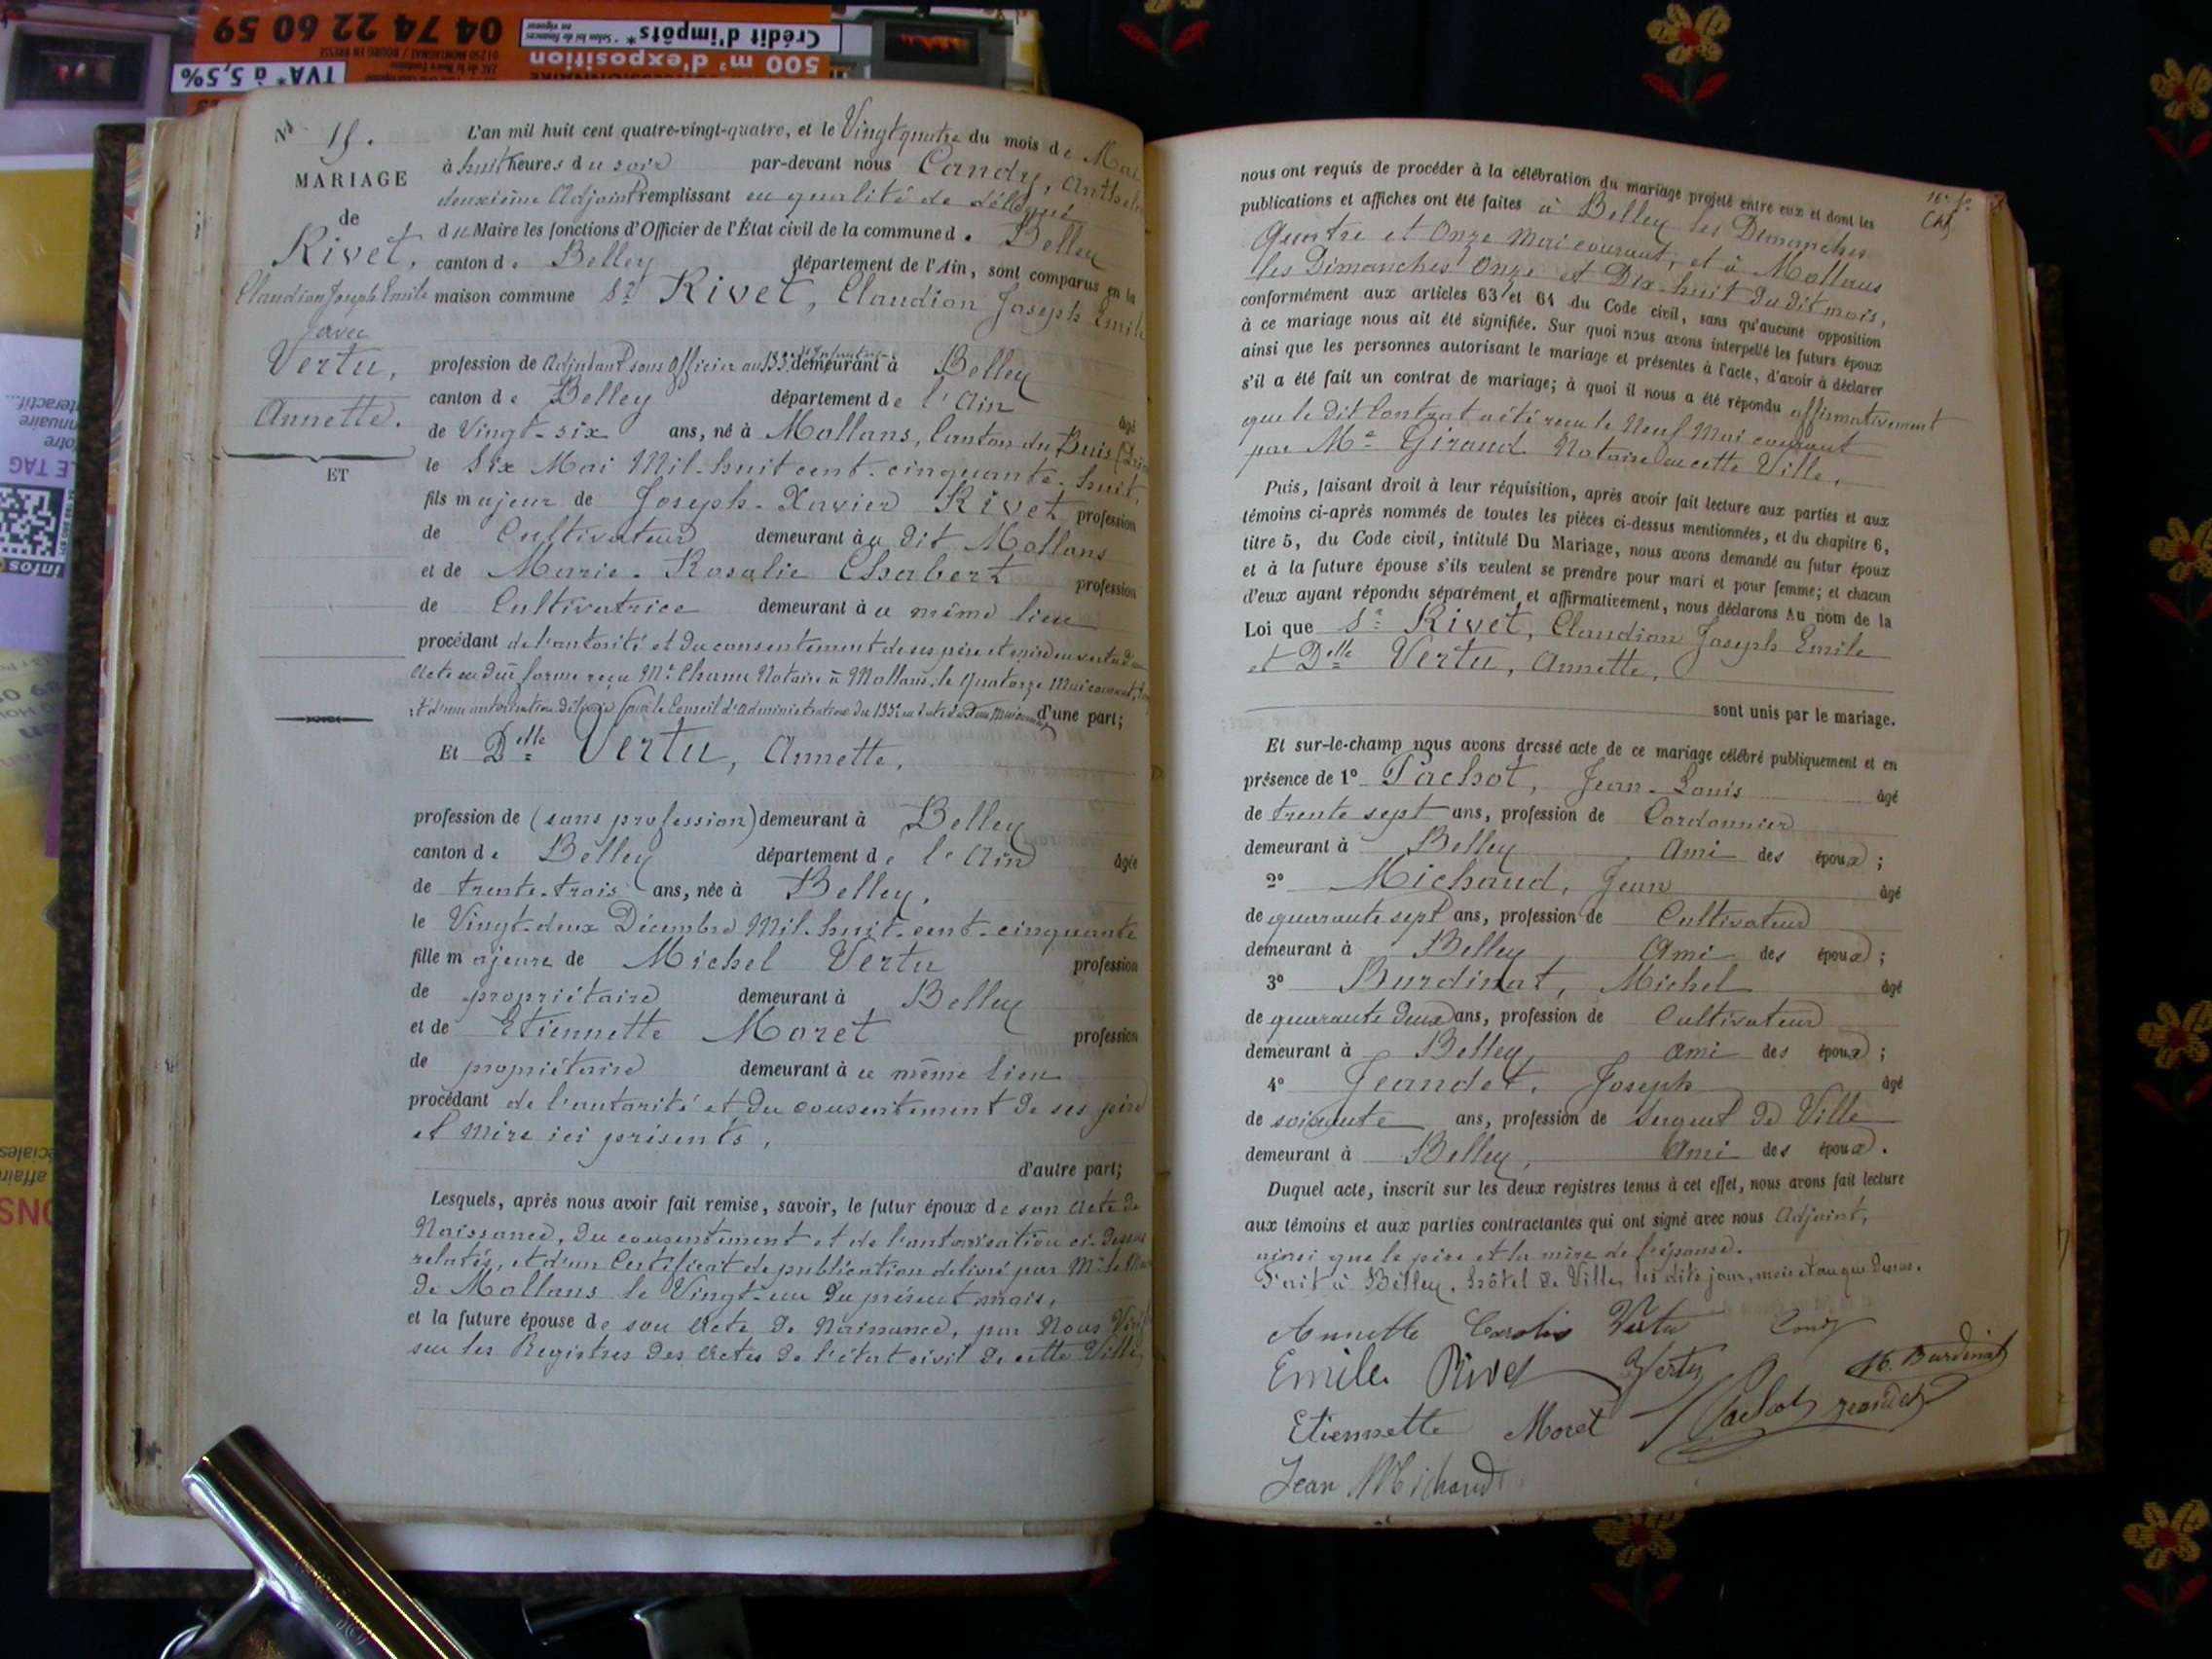 04 74 22 60 59
01250 MONTAGNAT / BOURG EN BRESSE
ZAC de la Noire Fontaine
Crédit d'impôts*
* Selon loi de finances
en vigueur
500 m² d'exposition
TVA* à 5,5%
LE TAG
Infos
N° 15.
MARIAGE
de
Rivet,
Claudion Joseph Emile
avec
Vertu,
Annette.
ET
L'an mil huit cent quatre-vingt-quatre, et le Vingt quatre du mois de Mai
à huit heures du soir par-devant nous Candy, Anthel
deuxième Adjoint remplissant en qualité de délégué
du Maire les fonctions d'Officier de l'État civil de la commune de Belley
canton de Belley département de l'Ain, sont comparus en la
maison commune Sr Rivet, Claudion Joseph Emile
profession de Adjudant sous officier au 133e d'Infanterie demeurant à Belley
canton de Belley département de l'Ain âgé
de Vingt-six ans, né à Mollans, Canton du Buis (Drô
le Six Mai Mil-huit cent-cinquante-huit,
fils majeur de Joseph-Xavier Rivet profession
de Cultivateur demeurant au dit Mollans
et de Marie-Rosalie Chabert profession
de Cultivatrice demeurant à ce même lieu
procédant de l'autorité et du consentement de ses père et mère en vertu d'un
Acte en due forme reçu Me Chanu Notaire à Mollans, le quatorze Mai courant,
et d'une autorisation délivrée par le Conseil d'Administration du 133e en date du Mai d'une part;
Et Delle Vertu, Annette,
profession de (sans profession) demeurant à Belley
canton de Belley département de l'Ain âgée
de trente-trois ans, née à Belley,
le Vingt-deux Décembre Mil-huit-cent-cinquante
fille majeure de Michel Vertu profession
de propriétaire demeurant à Belley
et de Etiennette Moret profession
de propriétaire demeurant à ce même lieu
procédant de l'autorité et du consentement de ses père
et mère ici présents,
d'autre part;
Lesquels, après nous avoir fait remise, savoir, le futur époux de son Acte de
Naissance, du consentement et de l'autorisation ci-dessus
relatés, et d'un Certificat de publication délivré par Mr le Maire
de Mollans le Vingt-un du présent mois,
et la future épouse de son Acte de Naissance, par Nous Vérifié
sur les Registres des Actes de l'état civil de cette Ville,
nous ont requis de procéder à la célébration du mariage projeté entre eux et dont les
publications et affiches ont été faites à Belley les Dimanches
Quatre et Onze Mai courant, et à Mollans
les Dimanches Onze et Dix-huit du dit mois,
conformément aux articles 63 et 64 du Code civil, sans qu'aucune opposition
à ce mariage nous ait été signifiée. Sur quoi nous avons interpellé les futurs époux
ainsi que les personnes autorisant le mariage et présentes à l'acte, d'avoir à déclarer
s'il a été fait un contrat de mariage; à quoi il nous a été répondu affirmativement
que le dit Contrat a été reçu le Neuf Mai courant
par Me Giraud Notaire en cette Ville,
Puis, faisant droit à leur réquisition, après avoir fait lecture aux parties et aux
témoins ci-après nommés de toutes les pièces ci-dessus mentionnées, et du chapitre 6,
titre 5, du Code civil, intitulé Du Mariage, nous avons demandé au futur époux
et à la future épouse s'ils veulent se prendre pour mari et pour femme; et chacun
d'eux ayant répondu séparément et affirmativement, nous déclarons Au nom de la
Loi que Sr Rivet, Claudion Joseph Emile
et Delle Vertu, Annette,
sont unis par le mariage.
Et sur-le-champ nous avons dressé acte de ce mariage célébré publiquement et en
présence de 1° Pachot, Jean-Louis âgé
de trente sept ans, profession de Cordonnier
demeurant à Belley Ami des époux;
2° Michaud, Jean âgé
de quarante sept ans, profession de Cultivateur
demeurant à Belley Ami des époux;
3° Burdinat, Michel âgé
de quarante deux ans, profession de Cultivateur
demeurant à Belley, Ami des époux;
4° Jeandet, Joseph âgé
de soixante ans, profession de Sergent de Ville
demeurant à Belley, Ami des époux.
Duquel acte, inscrit sur les deux registres tenus à cet effet, nous avons fait lecture
aux témoins et aux parties contractantes qui ont signé avec nous Adjoint,
ainsi que le père et la mère de l'épouse.
Fait à Belley, hôtel de Ville, les dits jour, mois et an que dessus.
Annette Vertu
Emile Rivet Vertu M. Burdinat
Etiennette Moret Pachot Jeandet
Jean Michaud